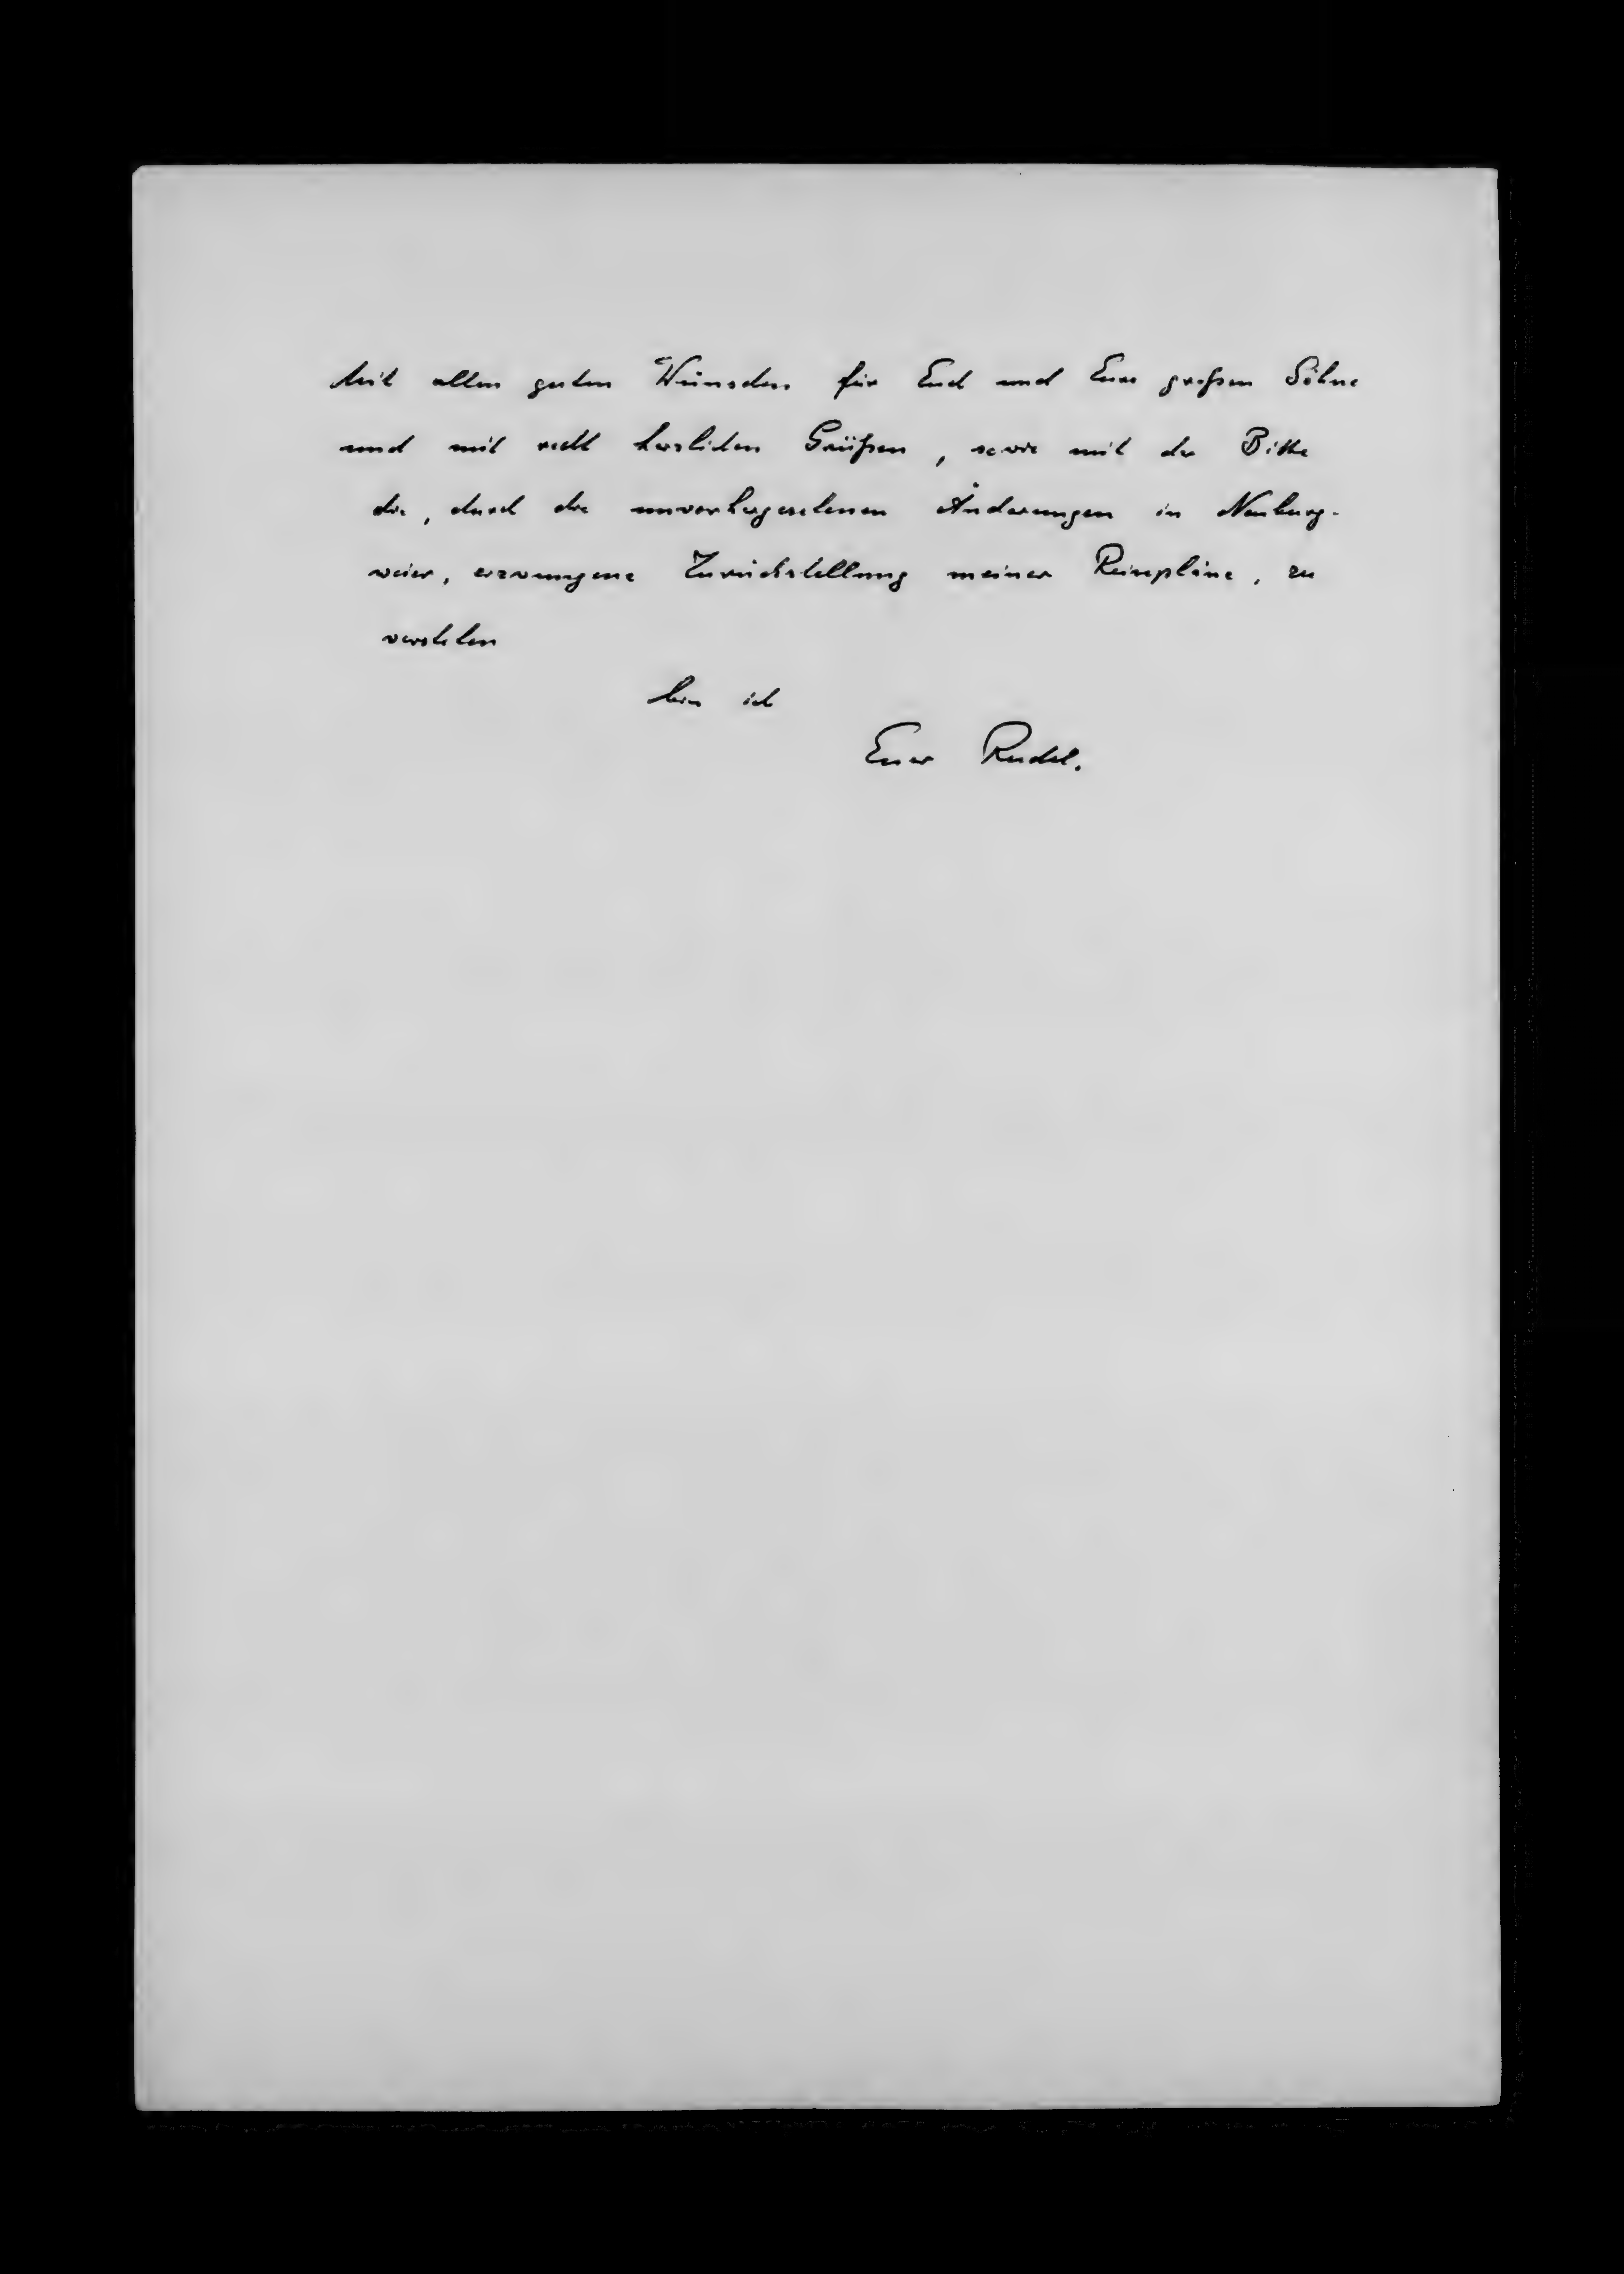 Mit allen guten Wünschen für Euch und Eure großen Söhne
und mit recht herzlichen Grüßen, sowie mit der Bitte
die, durch die unvorhergesehenen Änderungen in Neuburg-
weier, erzwungene Zurückstellung meiner Reisepläne, zu
verstehen
bin ich
Euer Rudel.